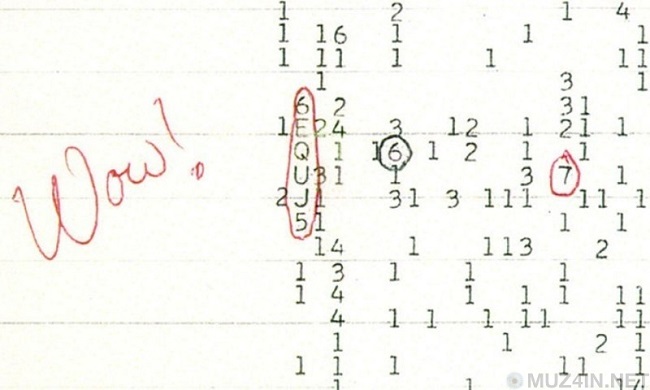 1 2 1 4
1 16 1 1 1
1 11 1 1 11
1 3 1
6 2 31
1 E24 3 12 1 21 1
Q 1 16 1 2 1 1
U31 1 3 7 1
2J1 31 3 111 11 1
51 1 1
14 1 113 2
1 3 1 1 1
1 4 1 1 1 11
4 1 1 1 11 11
1 1 2 1
1 1 1 11 1
Wow!
MUZ4IN.NET